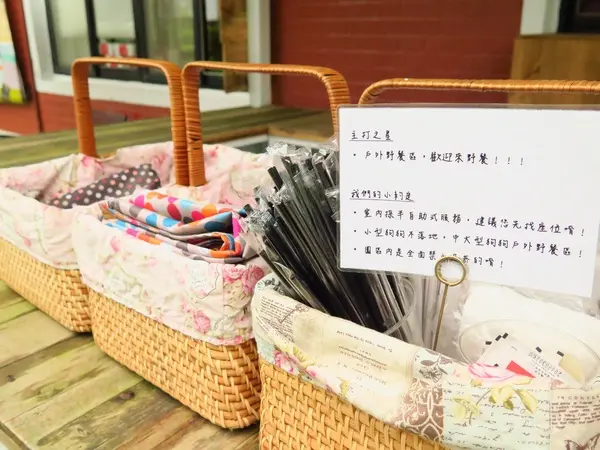 主打之星
・戶外野餐區，歡迎來野餐！！！
我們的小約定
・室內採半自助式服務，建議您先找座位唷！
・小型狗狗不落地，中大型狗狗戶外野餐區！
・園區內是全面禁菸的唷！